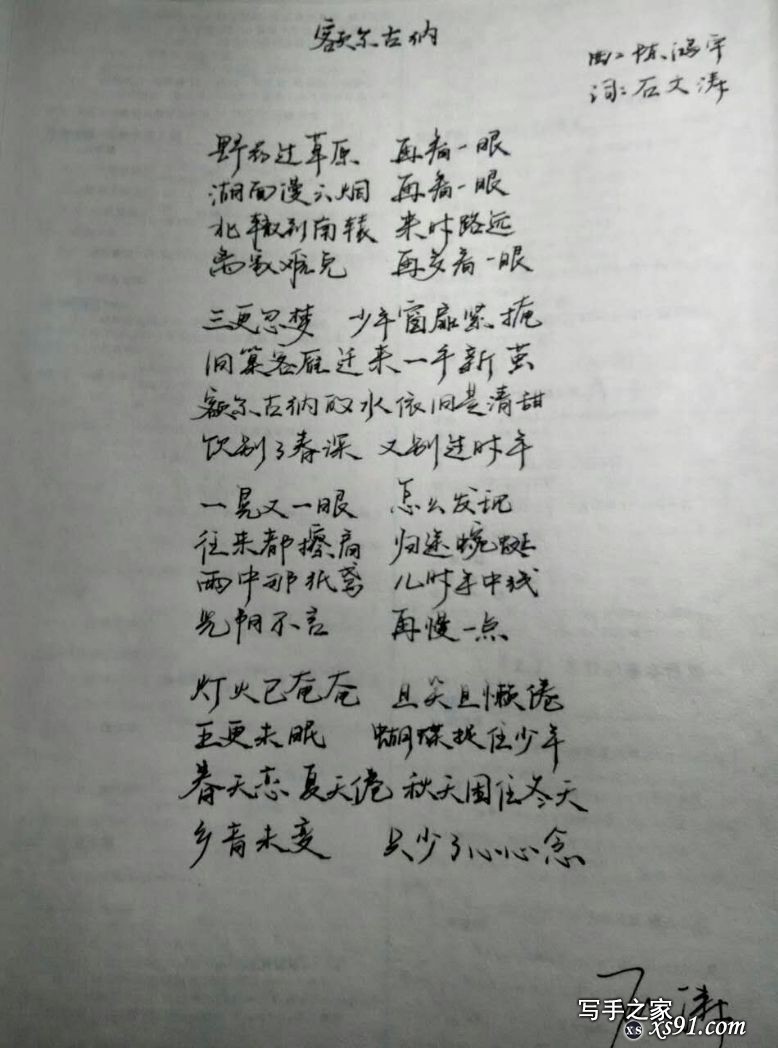 额尔古纳
曲：陈鸿宇
词：石文涛
野马过草原 再看一眼
湖面漫云烟 再看一眼
北辙到南辕 来时路远
离家难免 再多看一眼
三更忽梦 少年窗扉紧掩
旧巢客雁迁来一年新茧
额尔古纳的水依旧是清甜
饮别了春深 又别过时年
一晃又一眼 怎么发现
往来都擦肩 归途蜿蜒
雨中那纸鸢 儿时年中线
光阴不言 再慢一点
灯火已奄奄 且笑且懒倦
五更未眠 蝴蝶捉住少年
春天恋 夏天倦 秋天困住冬天
乡音未变 只少了心心念
涛
写手之家
xs xs91.com